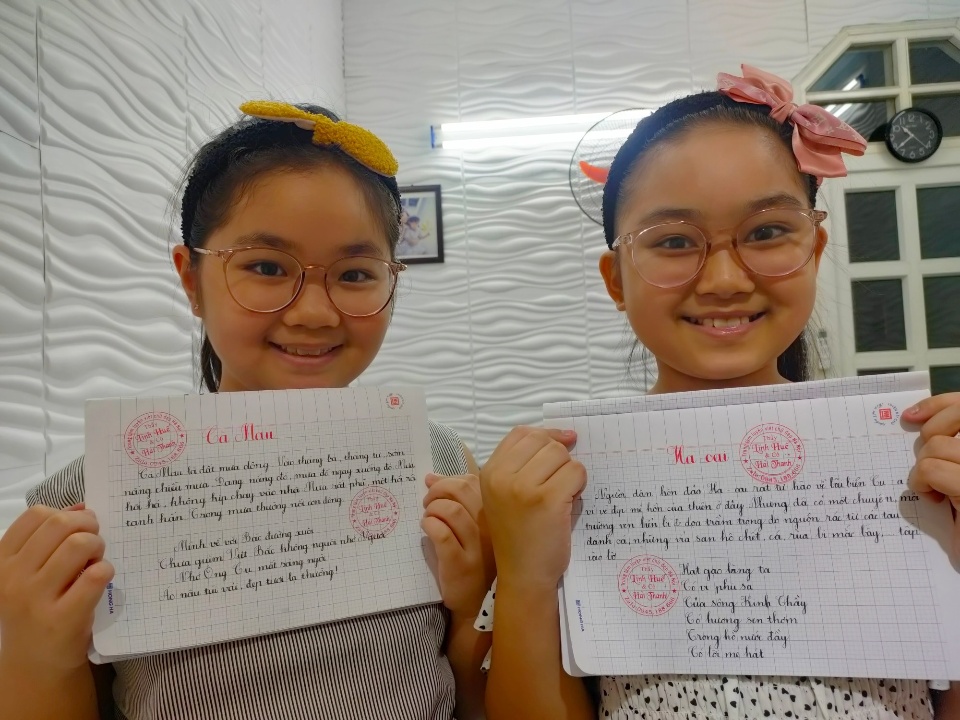 Cà Mau
Cà Mau là đất mưa dông. Vào tháng ba, tháng tư, sớm
nắng chiều mưa. Đang nắng đó, mưa đổ ngay xuống đó. Mưa
hối hả, không kịp chạy vào nhà. Mưa rất phũ, một hồi rồi
tạnh hẳn. Trong mưa thường nổi cơn dông.
Mình về với Bác đường xuôi
Thưa giùm Việt Bắc không nguôi nhớ Người
Nhớ Ông Cụ mắt sáng ngời
Áo nâu túi vải, đẹp tươi lạ thường!
THẦY
Linh Huê
& CÔ
Hải Thanh
HONG HA
Ha oai
Người dân hòn đảo Ha - oai rất tự hào về bãi biển Cu - a
vì vẻ đẹp mê hồn của thiên ở đây. Nhưng đã có một chuyện, môi
trường ven biển bị đe dọa trầm trọng do nguồn rác từ các tàu
đánh cá, những vỉa san hô chết, cá, rùa bị mắc bẫy, tấp
vào bờ
Hạt gạo làng ta
Có vị phù sa
Của sông Kinh Thầy
Có hương sen thơm
Trong hồ nước đầy
Có lời mẹ hát
THẦY
Linh Huê
& CÔ
Hải Thanh
THẦY
Linh Huê
& CÔ
Hải Thanh